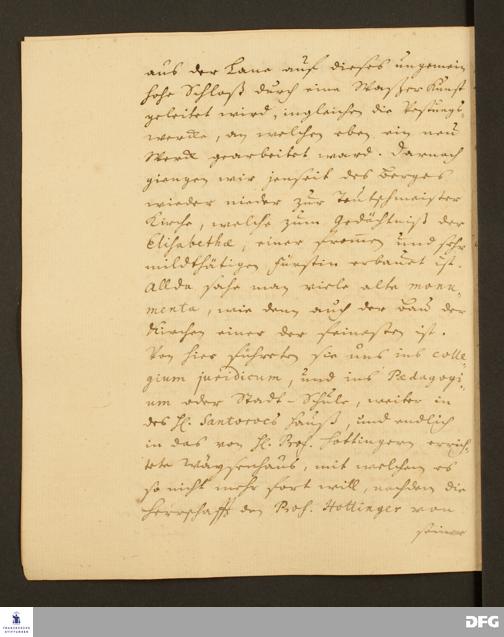 aus der Lana auf dieses ungemein
hohe Schloß durch eine Waßer Kunst
geleitet wird, ingleichen die Vestungs-
wercke, an welchen eben ein neü
Werck gearbeitet ward. Darnach
giengen wir jenseit des Berges
wieder nieder zur Teutschmeister
Kirche, welche zum Gedächtniß der
Elisabethæ, einer fromen und sehr
mildthätigen Fürstin erbauet ist.
Allda sahe man viele alte monu-
menta, wie denn auch der Bau der
Kirchen einer der feinesten ist.
Von hier führeten sie uns ins colle-
gium juridicum, und ins Pedagogi-
um oder Stadt-Schule, weiter in
des H. Santorocs Hauß, und endlich
in das von H. Prof. Hottingern errich-
tete Wäysenhaus, mit welchen es
so nicht mehr fort will, nachdem die
Herrschafft den Prof. Hottinger von
seiner
FRANCKESCHE STIFTUNGEN
DFG